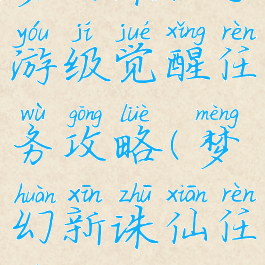 yóu jí jué xǐng rèn
游级觉醒任
wù gōng lüè mèng
务攻略(梦
huàn xīn zhū xiān rèn
幻新诛仙任